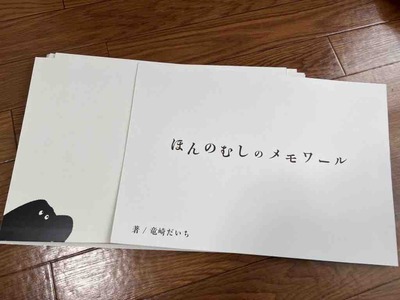 ほんのむしのメモワール
著 / 竜崎だいち